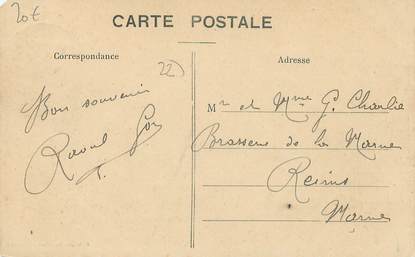 20€
CARTE POSTALE
Correspondance
Adresse
22)
Bon souvenir
Raoul
Mr et Mme G. Charlie
Brasserie de la Marne
Reims
Marne